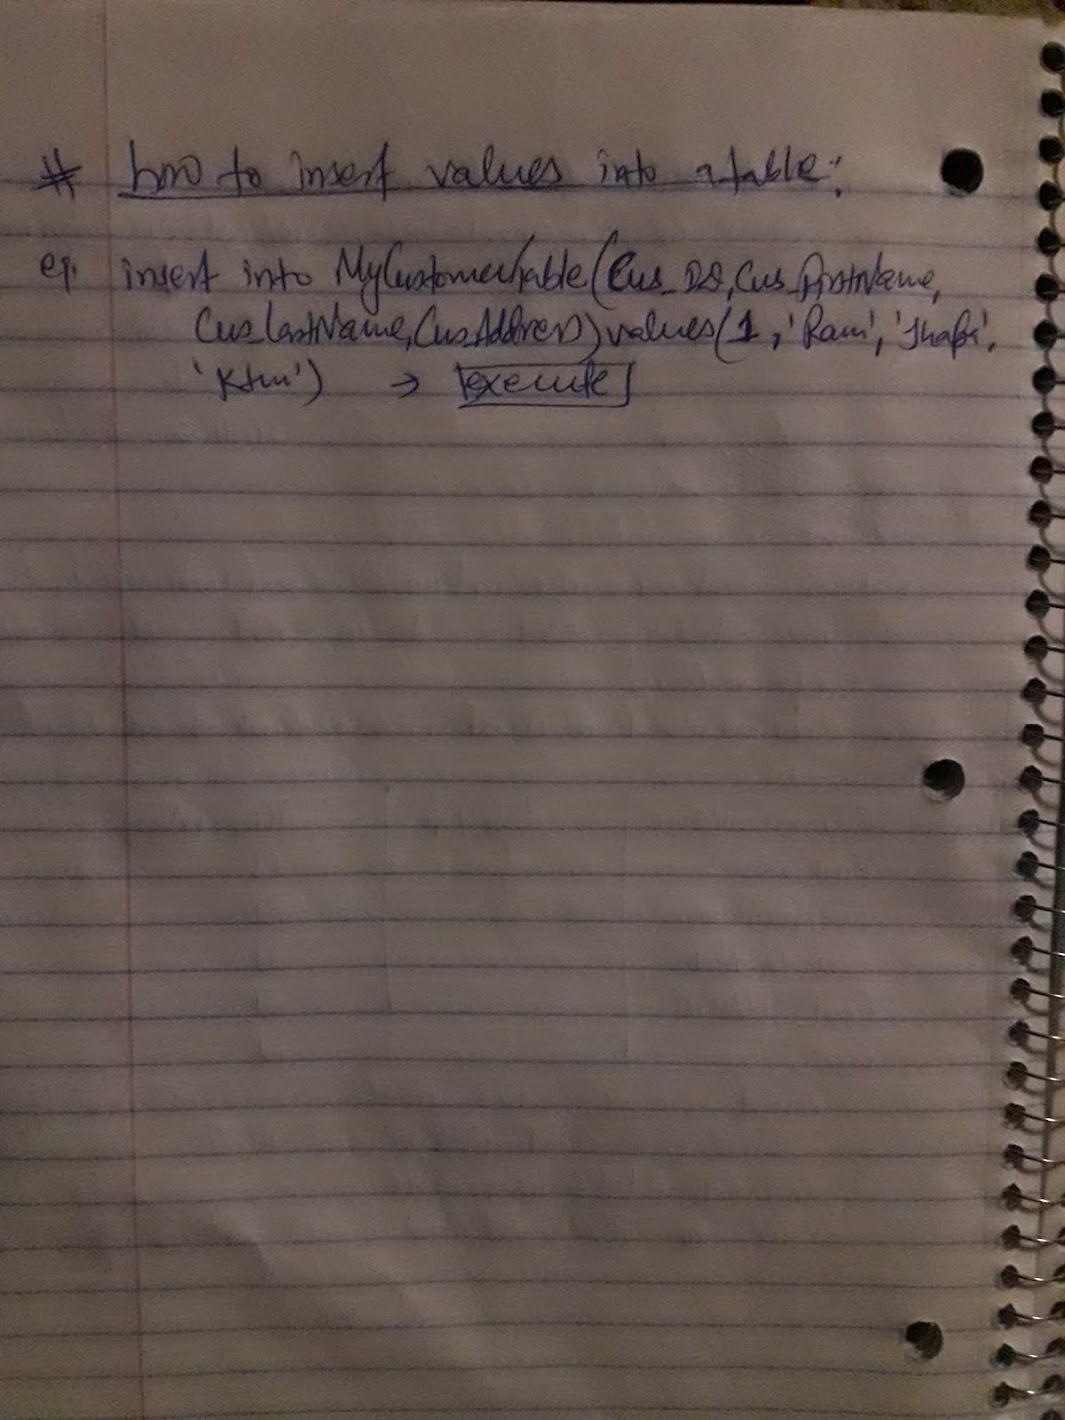 * how to insert values into a table:
eg. insert into MyCustomerTable(Cus_ID,Cus_FirstName,
Cus_LastName,Cus_Address)values(1,'Ram','Thapa',
'Ktm') → execute